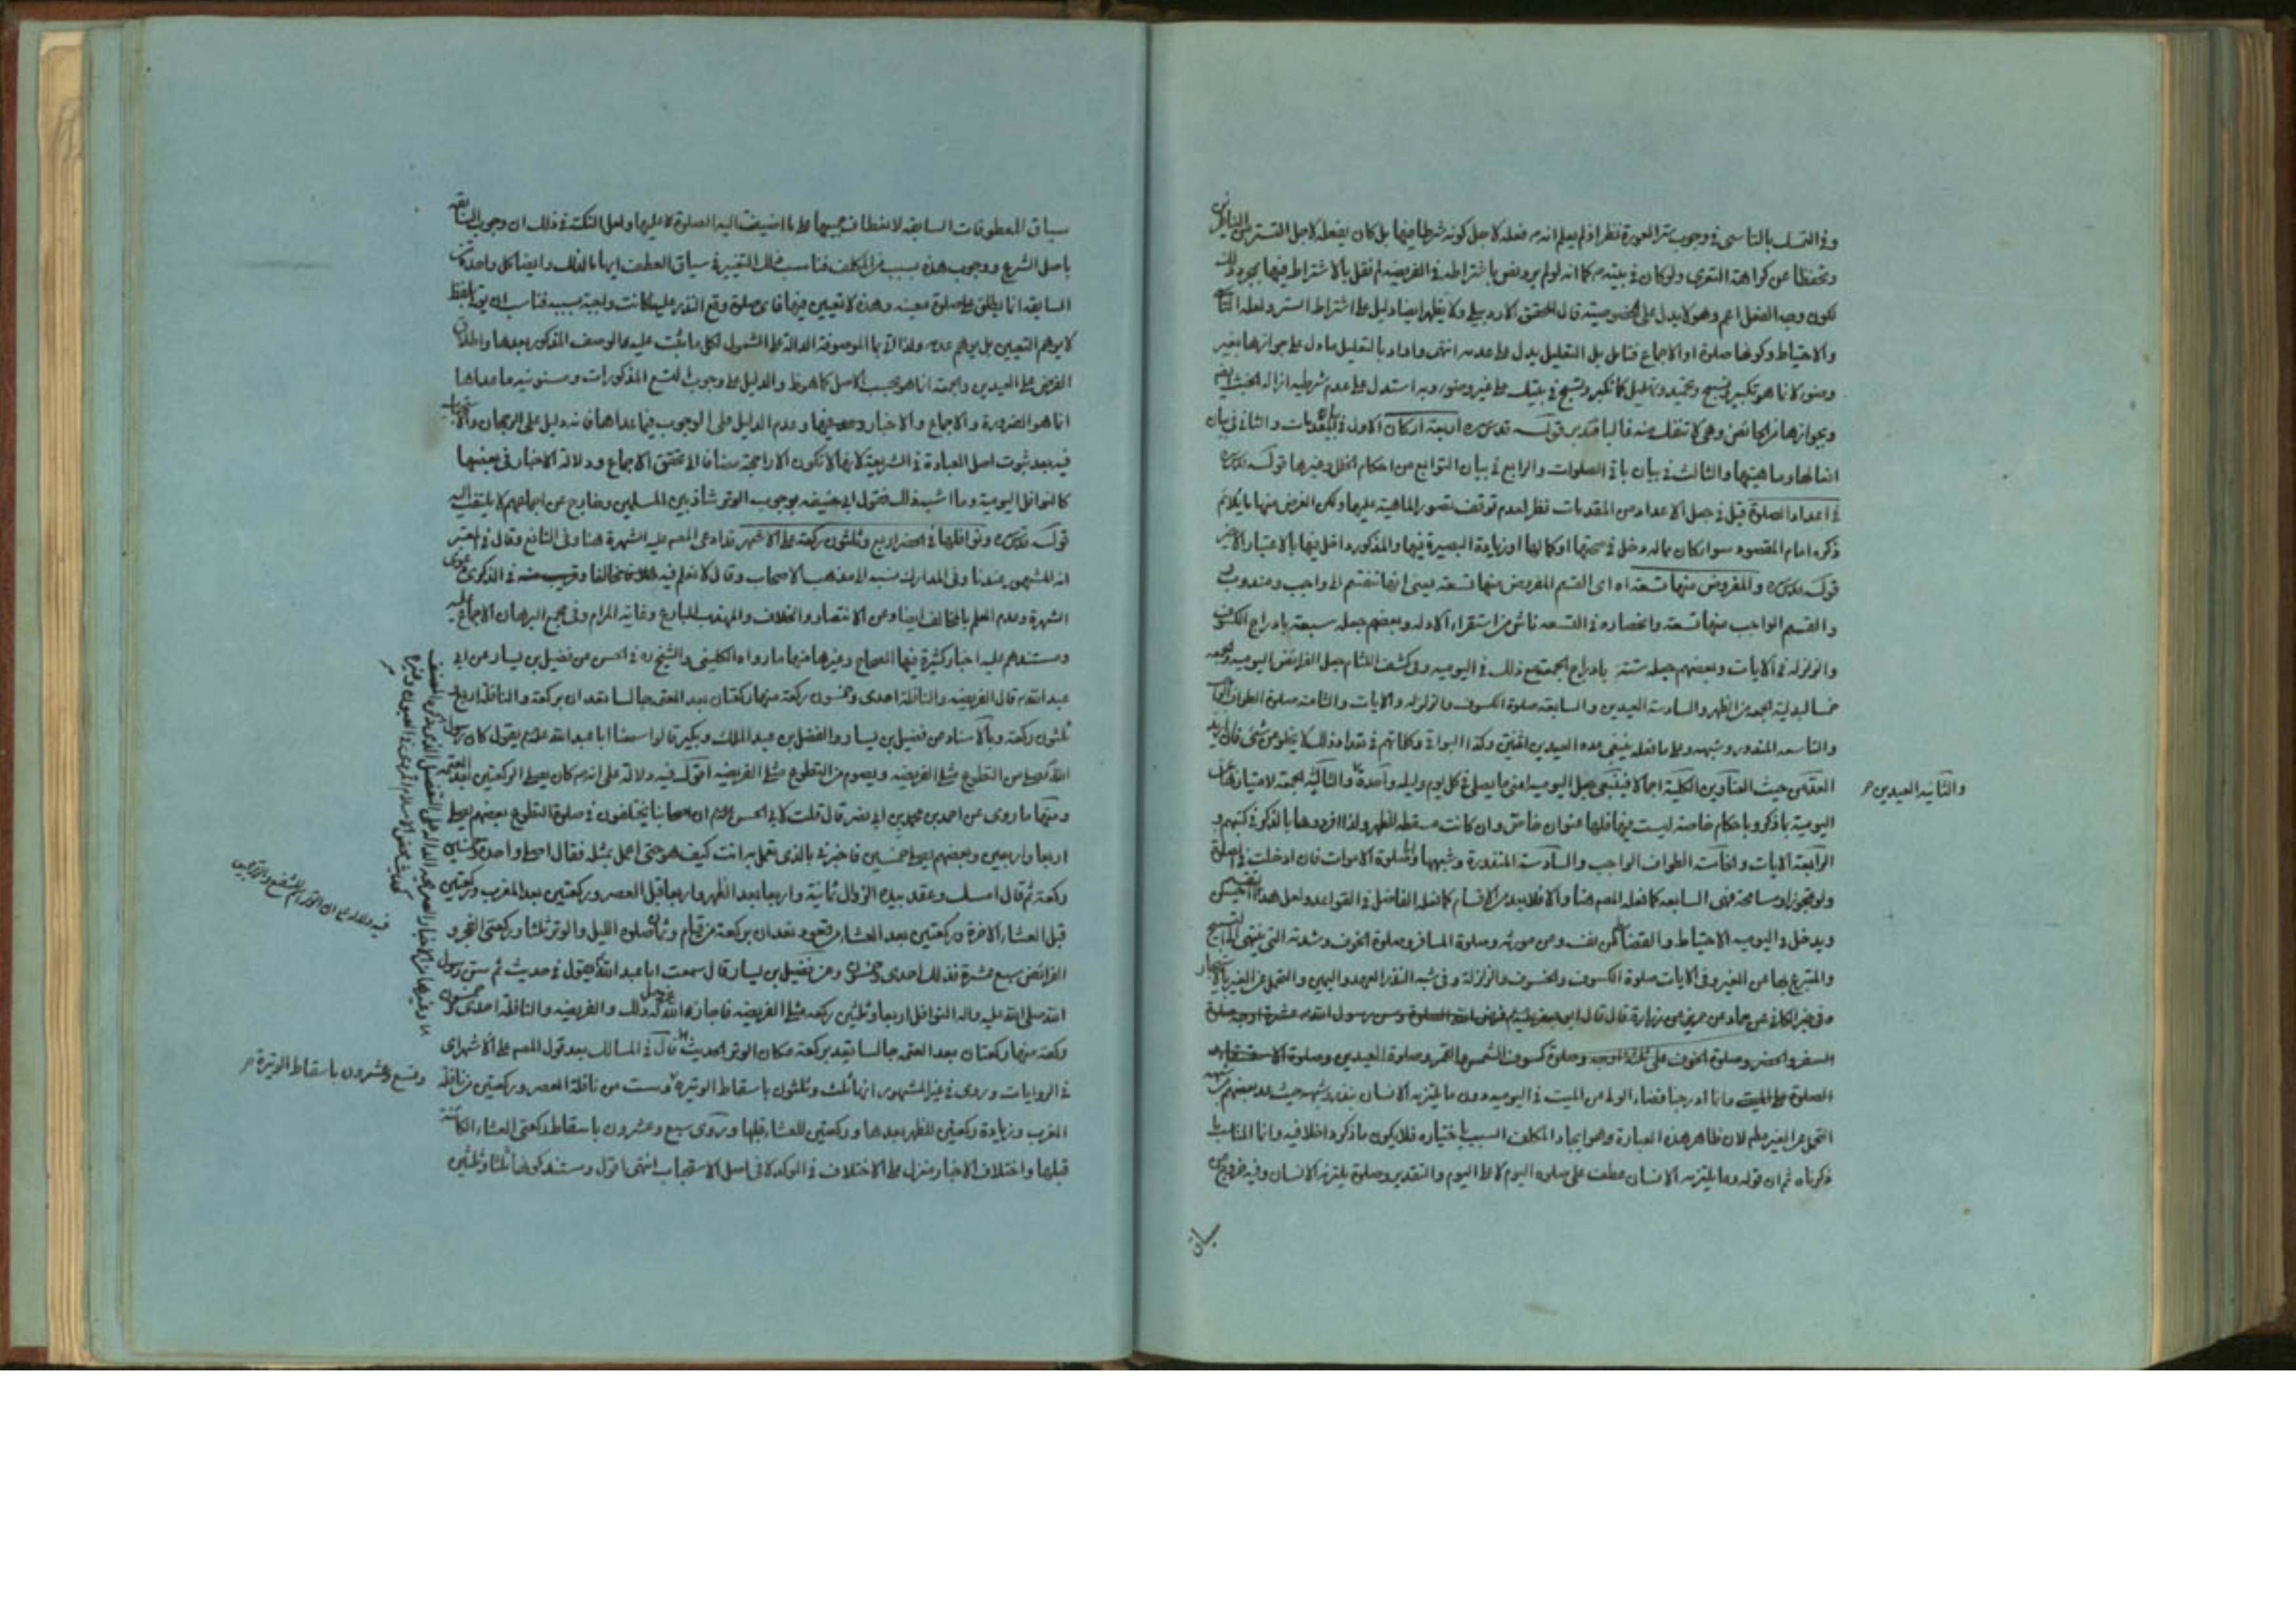 وفي التمسك بالتاسي في وجوب ستر العورة نظر اذ لم يعلم انه م فعله لاجل كونه شرطا فيها بل كان يفعله لاجل التستر من الناظرين
وتحفظا عن كراهة التعري ولو كان في بيته م كما انه لو لم يرو نص باشتراطه في الفريضة لم نقل بالاشتراط فيها بمجرد ذلك
لكون وجه الفعل اعم وهو لا يدل على الخصوصية قال المحقق الاردبيلي ولا يظهر ايضا دليل على اشتراط الستر ولعله التاسي
والاحتياط وكونها صلوة او الاجماع فتامل بل التعليل يدل على عدمه انتهى واراد بالتعليل ما دل على جوازها بغير
وضوء لانما هو تكبير وتسبيح وتحميد وتهليل كما تكبر وتسبح في بيتك على غير وضوء وبه استدل على عدم شرطية ازالة الخبث ايضا
وبجوازها من الحائض وهي لا تنفك منه غالبا فتدبر قوله قدس سره اربعة اركان الاول في المقدمات والثاني في بيان
افعالها وماهيتها والثالث في بيان باقي الصلوات والرابع في بيان التوابع من احكام الخلل وغيرها قوله قدس سره
في اعداد الصلوة قيل في جعل الاعداد من المقدمات نظر لعدم توقف تصور الماهية عليها ولكن الغرض منها ما يلائم
ذكره امام المقصود سواء كان مما له دخل في صحتها او كمالها او زيادة البصيرة فيها والمذكور داخل فيها بالاعتبار الاخير
قوله قدس سره والمفروض منها تسعة اه اي القسم المفروض منها تسعة يعني انها تنقسم الى واجب ومندوب
والقسم الواجب منها تسعة وانحصاره في التسعة ناش من استقراء الادلة وبعضهم جعله سبعة بادراج الكسوف
والزلزلة في الايات وبعضهم جعله ستة بادراج الجمعة مع ذلك في اليومية وفي كشف اللثام جعل الفرائض اليومية والجمعة
خمسا لبدلية الجمعة من الظهر والسادسة العيدين والسابعة صلوة الكسوف والزلزلة والايات والثامنة صلوة الطواف
والتاسعة المنذور وشبهه وعلى ما فعله ينبغي عده العيدين اثنتين وكذا البواقي وكلماتهم في تعداد ذلك لا يخلو من شيء فان اريد
العد من حيث العناوين الكلية اجمالا فينبغي جعل اليومية اعني ما يصلى في كل يوم وليلة واحدة والثالثة الجمعة لامتيازها عن
والثانية العيدين
اليومية بما ذكر وباحكام خاصة ليست فيها فلها عنوان خاص وان كانت مسقطة للظهر ولذا افردوها بالذكر في كتبهم و
الرابعة الايات والخامسة الطواف الواجب والسادسة المنذورة وشبهها واما صلوة الاموات فان ادخلت في الصلوة
ولو بتجوز او مسامحة فهي السابعة كما فعله المص هنا والا فلا بد من الاقسام كما فعله الفاضل في القواعد ولعل هذا التقسيم احسن
ويدخل في اليومية الاحتياط والقضاء عن نفسه ومن مورثه وصلوة المسافر وصلوة الخوف وشدته التي ينتهي الى التسبيح
والمتبرع بها عن الغير وفي الايات صلوة الكسوف والخسوف والزلزلة وفي شبه النذر العهد واليمين والتحمل عن الغير بالاستيجار
وفي خبر الكافي عن حماد عن حريز عن زرارة قال قال ابو جعفر عليه السلام فرض الله الصلوة وسن رسول الله م عشرة اوجه صلوة
السفر والحضر وصلوة الخوف على ثلثة اوجه وصلوة كسوف الشمس والقمر وصلوة العيدين وصلوة الاستسقاء و
الصلوة على الميت وانما ادرجنا قضاء الولد عن الميت في اليومية دون ما يلتزمه الانسان بنذر وشبهه حيث عد بعضهم من شبهه
التحمل عن الغير لان ظاهر هذه العبارة وهو ايجاد المكلف السبب باختياره فلا يكون ما ذكر داخلا فيه وانما المناسب ما
ذكرناه ثم ان قوله وما يلتزمه الانسان عطف على صلوة اليوم لا على اليوم والتقدير وصلوة يلتزمه الانسان وفيه خروج عن
سياق
سياق المعطوفات السابقة لانعطاف جميعها على ما اضيفت اليه الصلوة لا عليها ولعل النكتة في ذلك ان وجوب السابقة
باصل الشرع ووجوب هذه بسبب من المكلف فناسب ذلك التغيير في سياق العطف ايماء لذلك وايضا كل واحدة من
السابقة انما يطلق على صلوة معينة وهذه لا تعيين فيها فاي صلوة وقع النذر عليها كانت واجبة بسببه فناسب ان يؤتى بلفظ
لا يوهم التعيين بل يوهم عدمه ولذا اتى بما الموصوفة الدالة على الشمول لكل ما يثبت عليه الوصف المذكور بعدها واطلاق
الفرض على العيدين والجمعة انما هو بحسب الاصل كما هو ظ والدليل على وجوب التسع المذكورات ومسنونية ما عداها
انما هو الضرورة والاجماع والاخبار فيها وعدم الدليل على الوجوب فيما عداها فانه دليل على الرجحان والاستحباب
فيه بعد ثبوت اصل العبادة في الشريعة لانها لا تكون الا راجحة مضافا الى تحقق الاجماع ودلالة الاخبار في بعضها
كالنوافل اليومية وما اشبه ذلك فقول ابي حنيفة بوجوب الوتر شاذ بين المسلمين وخارج عن اجماعهم لا يلتفت اليه
قوله قدس سره ونوافلها في الحضر اربع وثلثون ركعة على الاشهر قد ادعى المص عليه الشهرة هنا وفي النافع وقال في المعتبر
انه المشهور عندنا وفي المدارك نسبه الى مذهب الاصحاب وقال لا نعلم فيه مخالفا وفي الذكرى دعوى
الشهرة وعدم العلم بالمخالف ايضا وعن الانتصار والخلاف والمهذب البارع وغاية المرام وفي مجمع البرهان الاجماع عليه
ومستندهم عليه اخبار كثيرة فيها الصحاح وغيرها منها ما رواه الكليني والشيخ ره في الحسن عن فضيل بن يسار عن ابي
عبد الله م قال الفريضة والنافلة احدى وخمسون ركعة منها ركعتان بعد العتمة جالسا تعدان بركعة والنافلة اربع و
ثلثون ركعة وبالاسناد عن فضيل بن يسار والفضل بن عبد الملك وبكير قالوا سمعنا ابا عبد الله عليه السلام يقول كان رسول
الله ص يصلي من التطوع مثلي الفريضة ويصوم من التطوع مثلي الفريضة اقول فيه دلالة على انه م كان يصلي الركعتين بعد العتمة
ومنها ما روى عن احمد بن محمد بن ابي نصر قال قلت لابي الحسن عليه السلام ان اصحابنا يختلفون في صلوة التطوع بعضهم يصلي
اربعا واربعين وبعضهم يصلي خمسين فاخبرني بالذي تعمل به انت كيف هو حتى اعمل بمثله فقال اصلي واحدة وخمسين
ركعة ثم قال امسك وعقد بيده الزوال ثمانية واربعا بعد الظهر واربعا قبل العصر وركعتين بعد المغرب وركعتين
قبل العشاء الاخرة وركعتين بعد العشاء من قعود تعدان بركعة من قيام وثمان صلوة الليل والوتر ثلثا وركعتي الفجر و
الفرائض سبع عشرة فذلك احدى وخمسون وعن فضيل بن يسار قال سمعت ابا عبد الله يقول في حديث ثم سن رسول
الله صلى الله عليه واله النوافل اربعا وثلثين ركعة مثلي الفريضة فاجاز الله عز وجل له ذلك والفريضة والنافلة احدى وخمسون
ركعة منها ركعتان بعد العتمة جالسا تعد بركعة مكان الوتر الحديث قال في المسالك بعد قول المص على الاشهر اي
في الروايات وروى في غير المشهور انها ثلث وثلثون باسقاط الوتيرة وست من نافلة العصر وركعتين من نافلة
المغرب وزيادة ركعتين للظهر بعدها وركعتين للعشاء قبلها وروى سبع وعشرون باسقاط ركعتي العشاء الكائنة
قبلها واختلاف الاخبار منزل على الاختلاف في الموكد لا في اصل الاستحباب انتهى اقول ومستند كونها ثلثا وثلثين
وتسع وعشرون باسقاط الوتيرة